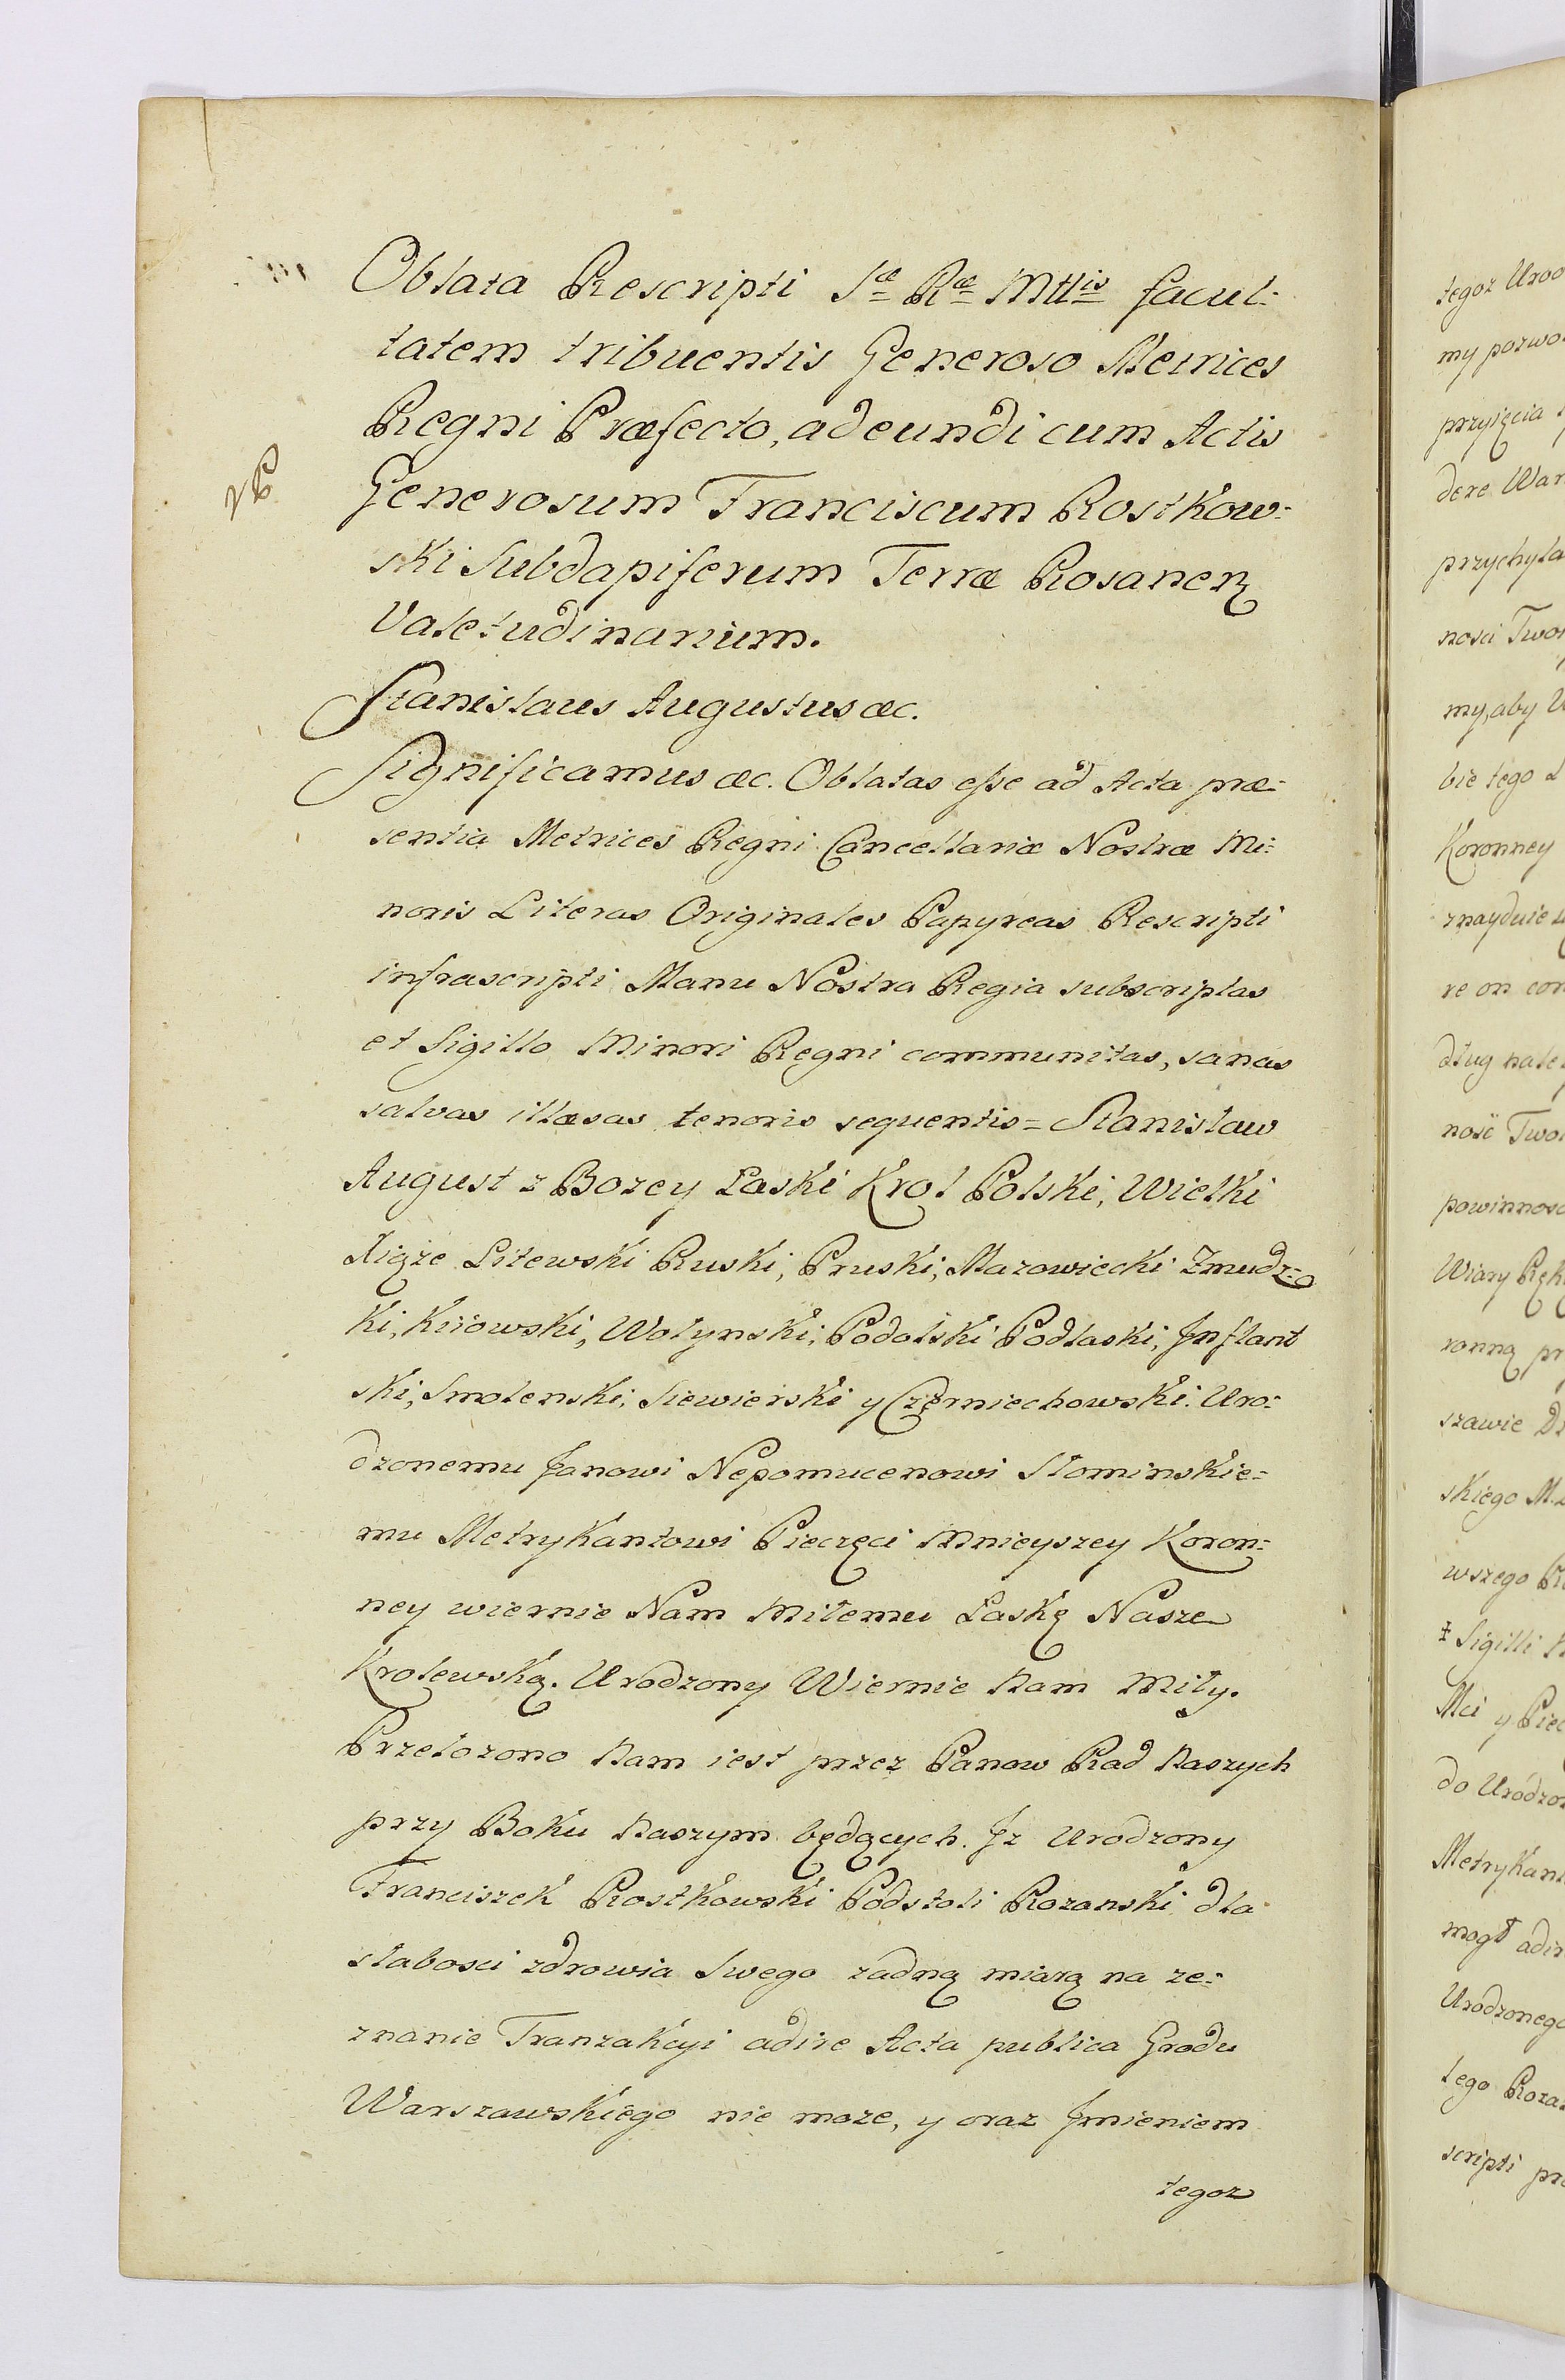 Oblata Rescripti Sæ Ræ Mttis facul-
tatem tribuentis Generoso Metrices
Regni Præfecto, adeundi cum Actis
Generosum Franciscum Rostkow-
ski Subdapiferum Terræ Rosanen
Valetudinarium.
Stanislaus Augustus &c.
Significamus &c. Oblatas esse ad Acta præ-
sentia Metrices Regni Cancellariæ Nostræ Mi-
noris Literas Originales Papyreas Rescripti
infrascripti Manu Nostra Regia subscriptas
et Sigillo Minori Regni communitas, sanas
salvas illæsas tenoris sequentis = Stanisław
August z Bozey Łaski Krol Polski, Wielki
Xiąże Litewski Ruski, Pruski, Mazowiecki Zmudz-
ki, Kiiowski, Wołynski, Podolski Podlaski, Inflant
ski, Smolenski, Siewierski y Czerniechowski. Uro-
dzonemu Janowi Nepomucenowi Słominskie-
mu Metrykantowi Pieczęci Mnieyszey Koron-
ney wiernie Nam Miłemu Łaskę Nasze
Krolewską. Urodzony Wiernie Nam Miły.
Przełozono Nam iest przez Panow Rad Naszych
przy Boku Naszym będących. Iz Urodzony
Franciszek Rostkowski Podstoli Rozanski dla
słabosci zdrowia Swego zadną miarą na ze-
znanie Tranzakcyi adire Acta publica Grodu
Warszawskiego nie moze, y oraz Imieniem
tegoz
tegoz Urod
my pozwo
przyięcia
dere War
przychyla
nosci Two
my, aby
bie tego
Koronney
znayduie
re on
dług nale
nosć Two
powinnosc
Wiary Ręk
ronną pr
szawie
skiego
wszego
Sigilli
Mci y Piec
do Urodzo
Metrykan
mogł adir
Urodzonego
tego Roza
scripti pr